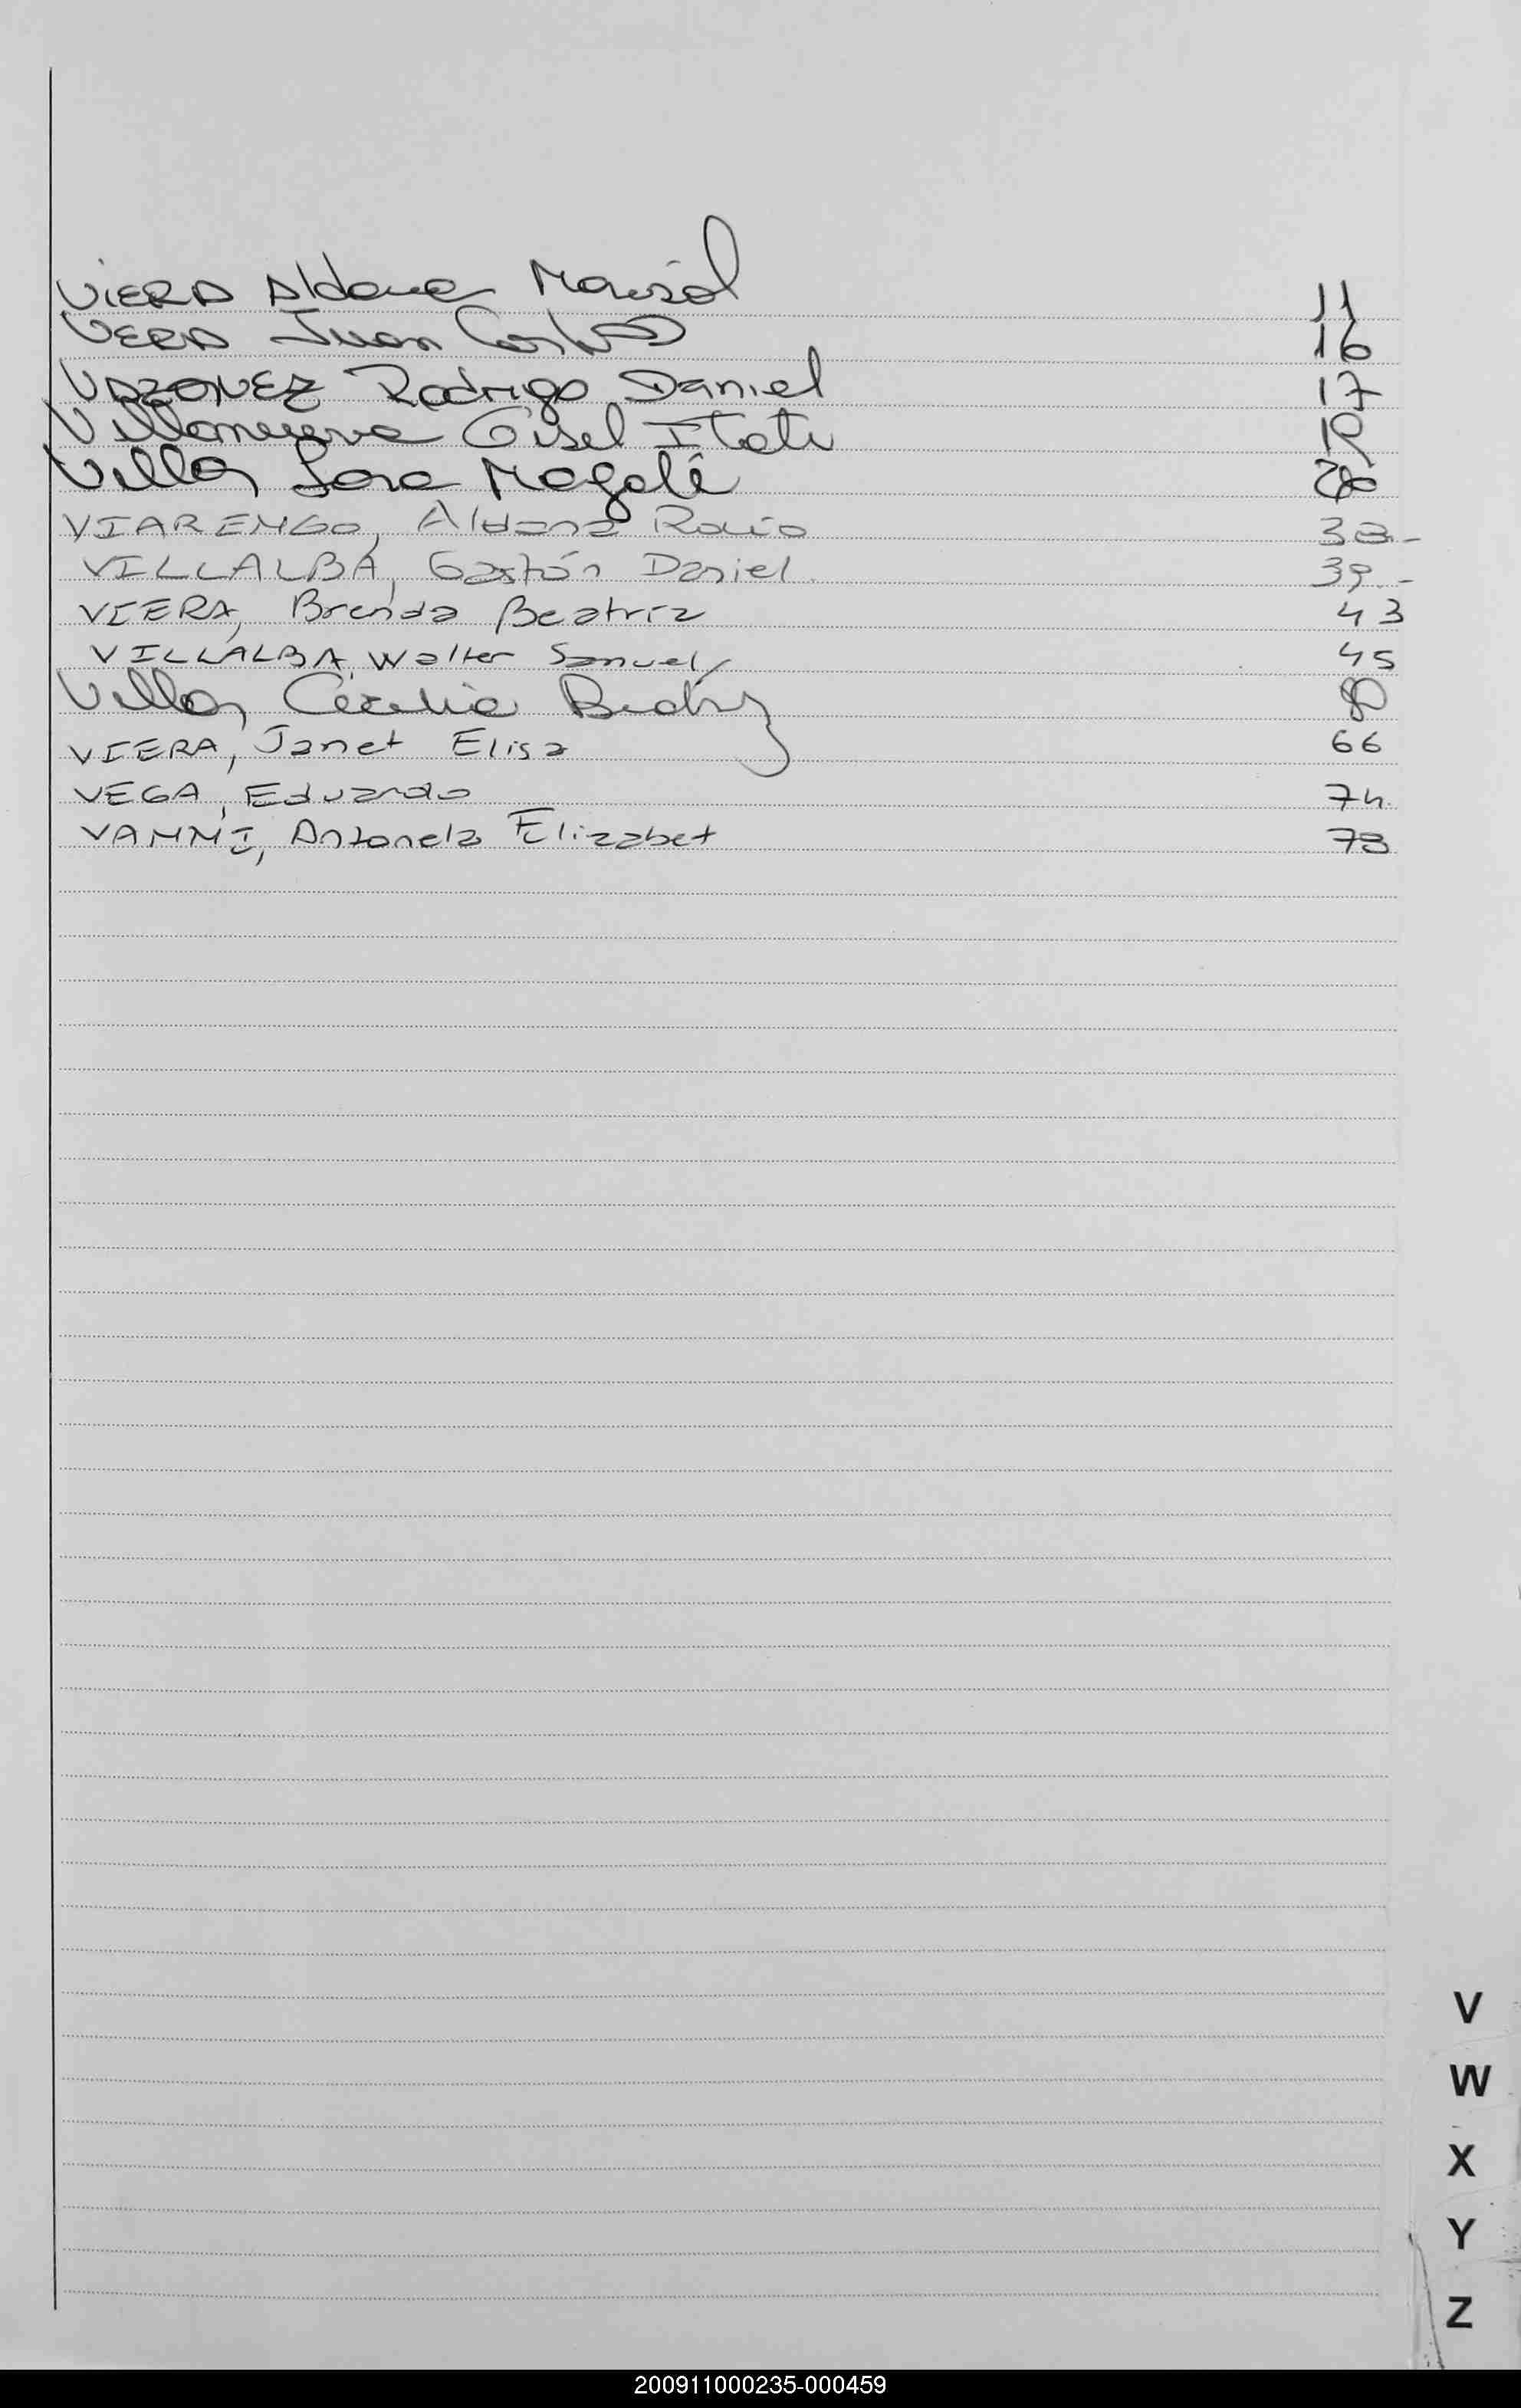 VIERA Aldana Marisol 11
VERA Juan Carlos 16
VAZQUEZ Rodrigo Daniel 17
Villanueva Gisel Itati 19
Villa, Sara Magali
VIARENGO, Aldana Rocío 38.-
VILLALBA, Gastón Daniel. 39.-
VIERA, Brenda Beatriz 43
VILLALBA, Walter Samuel 45
Villa, Cecilia Beatriz
VIERA, Janet Elisa 66
VEGA, Eduardo 74.
VANNI, Antonela Elizabet 78
V
W
X
Y
Z
200911000235-000459